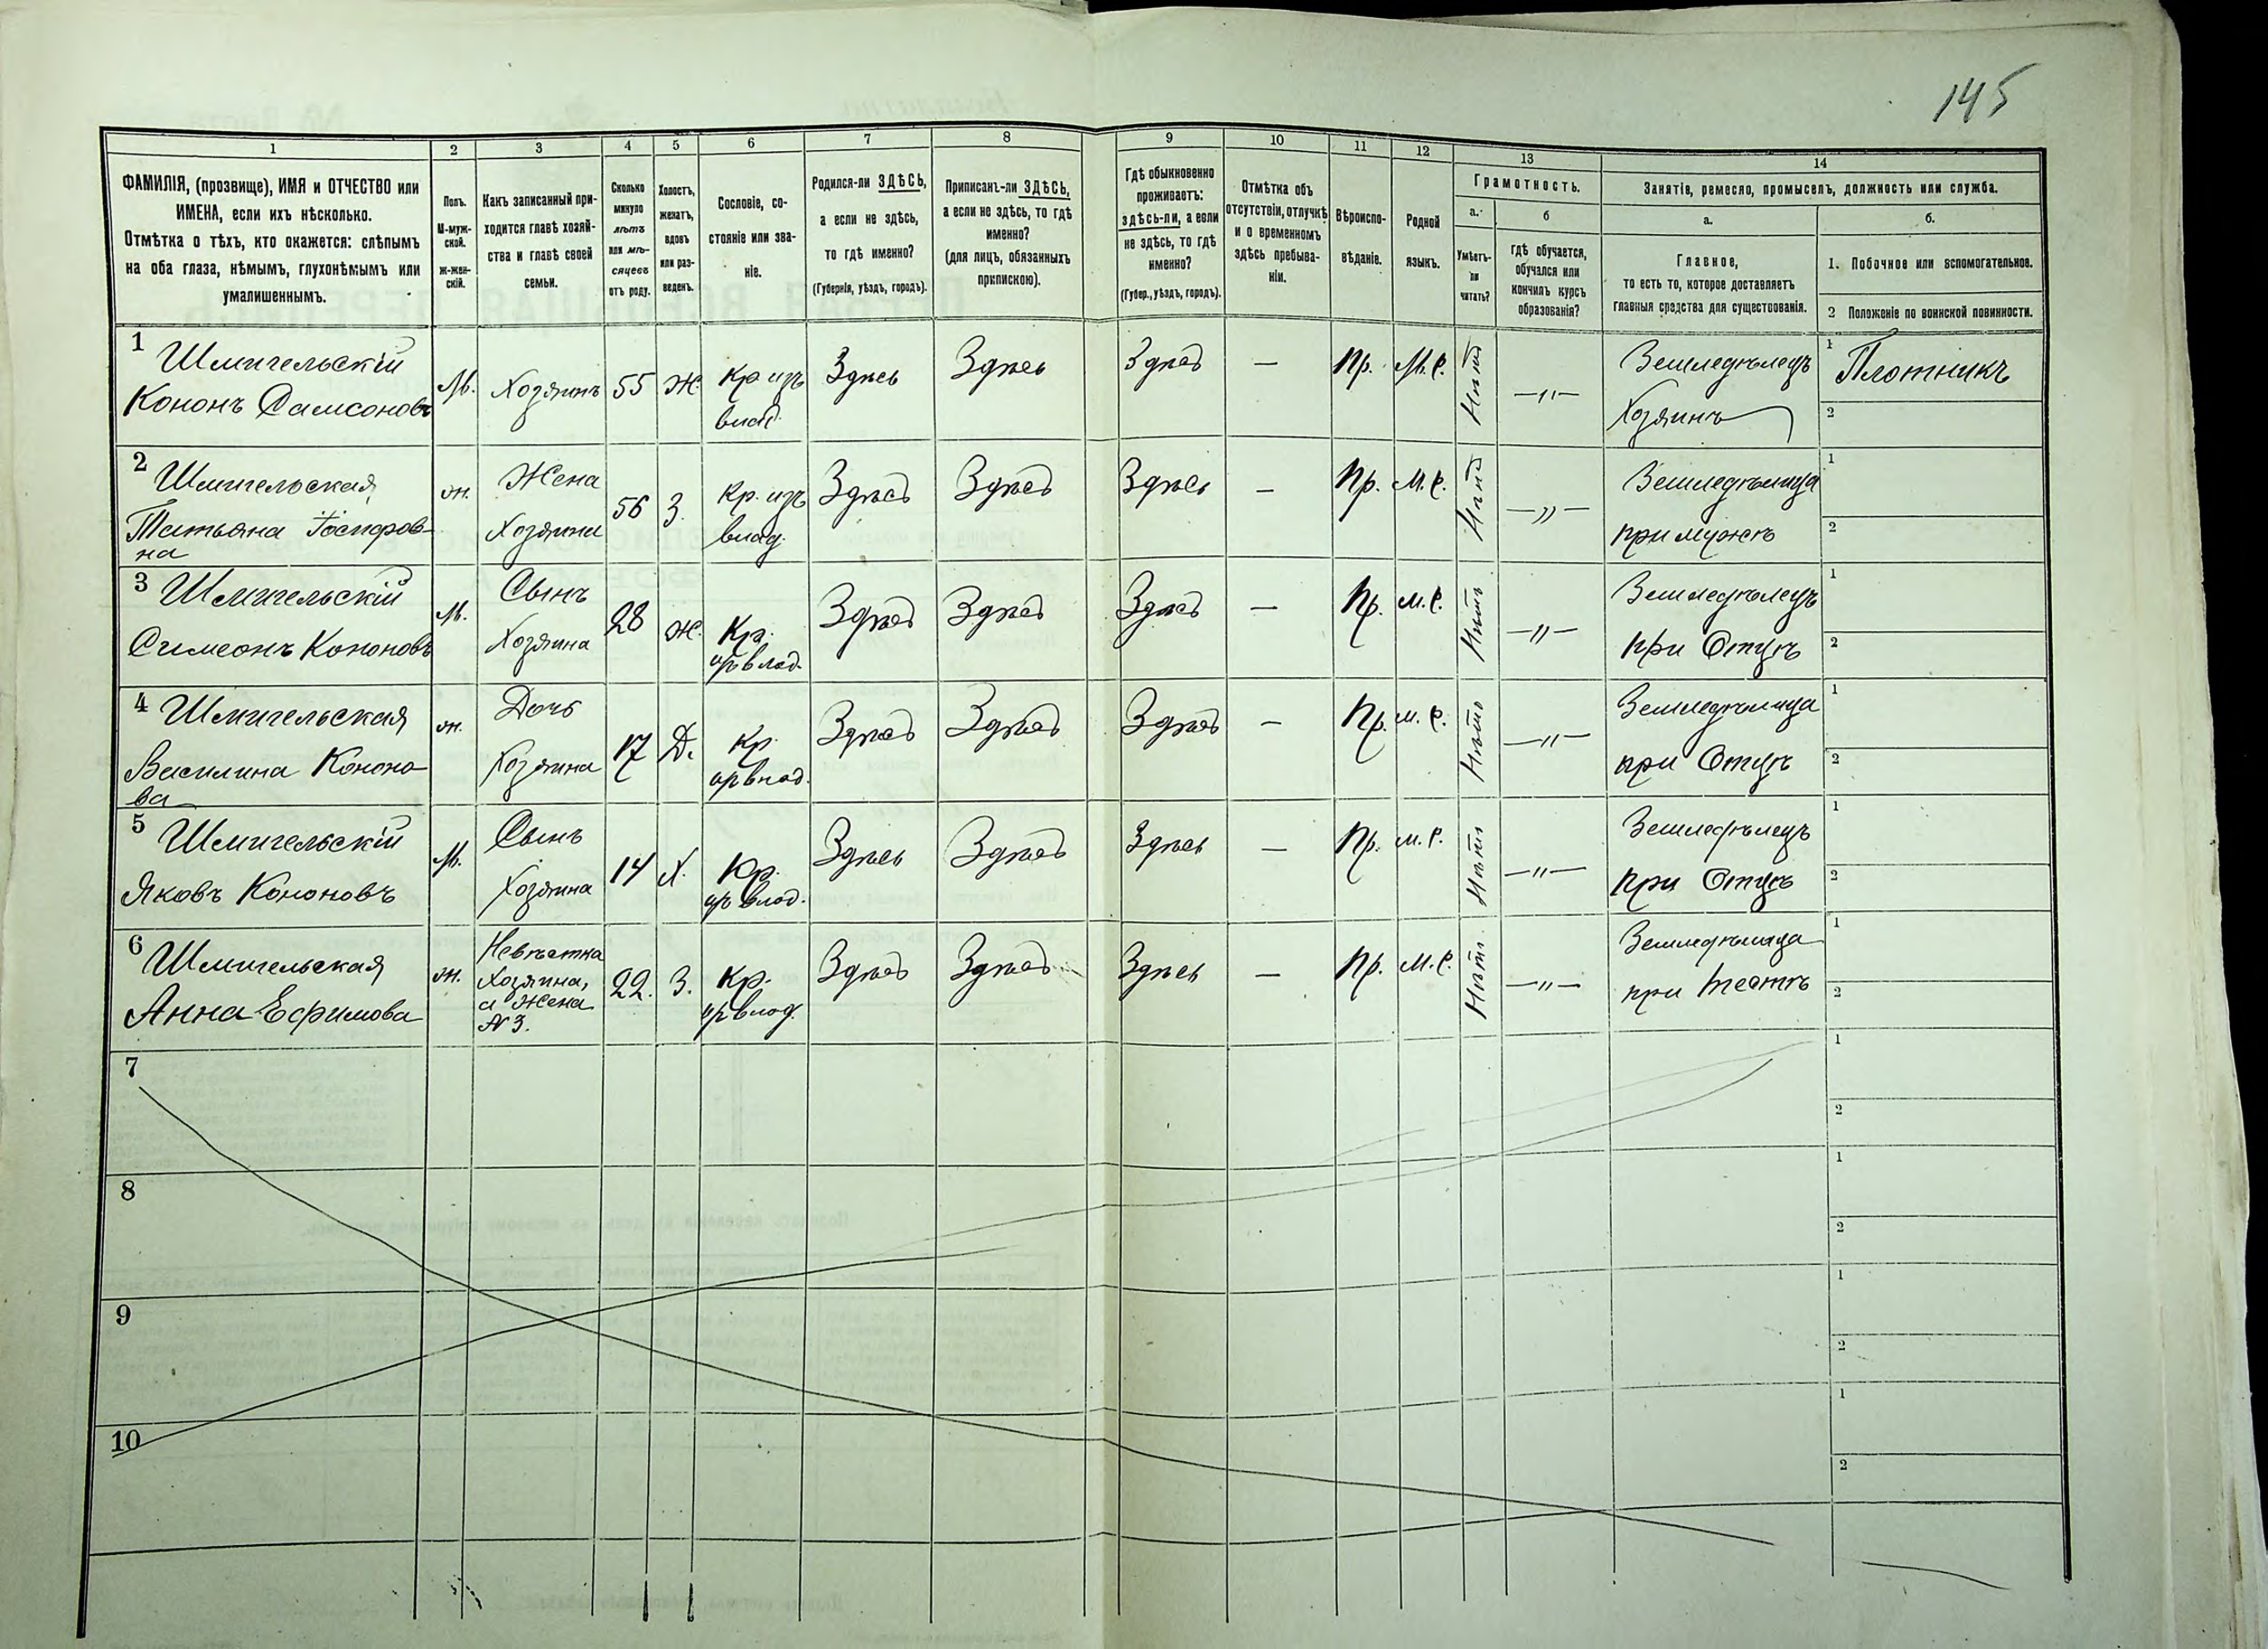 145
1 2 3 4 5 6 7 8 9 10 11 12 13 14
ФАМИЛІЯ, (прозвище), ИМЯ и ОТЧЕСТВО или
ИМЕНА, если ихъ нѣсколько.
Отмѣтка о тѣхъ, кто окажется: слѣпымъ
на оба глаза, нѣмымъ, глухонѣмымъ или
умалишеннымъ.
Полъ.
М-муж-
ской.
ж-жен-
скій.
Какъ записанный при-
ходится главѣ хозяй-
ства и главѣ своей
семьи.
Сколько
минуло
лѣтъ
или мѣ-
сяцевъ
отъ роду.
Холостъ,
женатъ,
вдовъ
или раз-
веденъ.
Сословіе, со-
стояніе или зва-
ніе.
Родился-ли ЗДѢСЬ,
а если не здѣсь,
то гдѣ именно?
(Губернія, уѣздъ, городъ).
Приписанъ-ли ЗДѢСЬ,
а если не здѣсь, то гдѣ
именно?
(для лицъ, обязанныхъ
припискою).
Гдѣ обыкновенно
проживаетъ:
здѣсь-ли, а если
не здѣсь, то гдѣ
именно?
(Губер., уѣздъ, городъ).
Отмѣтка объ
отсутствіи, отлучкѣ
и о временномъ
здѣсь пребыва-
ніи.
Вѣроиспо-
вѣданіе.
Родной
языкъ.
Грамотность.
а.
Умѣетъ-
ли
читать?
б
Гдѣ обучается,
обучался или
кончилъ курсъ
образованія?
Занятіе, ремесло, промыселъ, должность или служба.
а.
Главное,
то есть то, которое доставляетъ
главныя средства для существованія.
б.
1. Побочное или вспомогательное.
2 Положеніе по воинской повинности.
1 Шмигельскій
Кононъ Самсоновъ
М.
Хозяинъ
55
Ж
Кр. изъ
влад.
Здѣсь
Здѣсь
Здѣсь
—
Пр.
М.Р.
Нѣтъ
—"—
Земледѣлецъ
Хозяинъ
1 Плотникъ
2
2 Шмигельская
Татьяна Госперов-
на
ж.
Жена
Хозяина
56
З.
Кр. изъ
влад.
Здѣсь
Здѣсь
Здѣсь
—
Пр.
М.Р.
Нѣтъ
—"—
Земледѣлица
при мужѣ
1
2
3 Шмигельскій
Симеонъ Кононовъ
М.
Сынъ
Хозяина
28
ж.
Кр.
изъ влад.
Здѣсь
Здѣсь
Здѣсь
—
Пр.
М.Р.
Нѣтъ
—"—
Земледѣлецъ
при Отцѣ
1
2
4 Шмигельская
Василина Кононо-
ва
ж.
Дочь
Хозяина
17
Д.
Кр.
изъ влад.
Здѣсь
Здѣсь
Здѣсь
—
Пр.
М.Р.
Нѣтъ
—"—
Земледѣлица
при Отцѣ
1
2
5 Шмигельскій
Яковъ Кононовъ
М.
Сынъ
Хозяина
14
Х.
Кр.
изъ влад.
Здѣсь
Здѣсь
Здѣсь
—
Пр.
М.Р.
Нѣтъ
—"—
Земледѣлецъ
при Отцѣ
1
2
6 Шмигельская
Анна Ефимова
ж.
Невѣстка
Хозяина,
а Жена
№ 3.
22.
З.
Кр.
изъ влад.
Здѣсь
Здѣсь
Здѣсь
—
Пр.
М.Р.
Нѣтъ.
—"—
Земледѣлица
при тестѣ
1
2
7
1
2
8
1
2
9
1
2
10
1
2